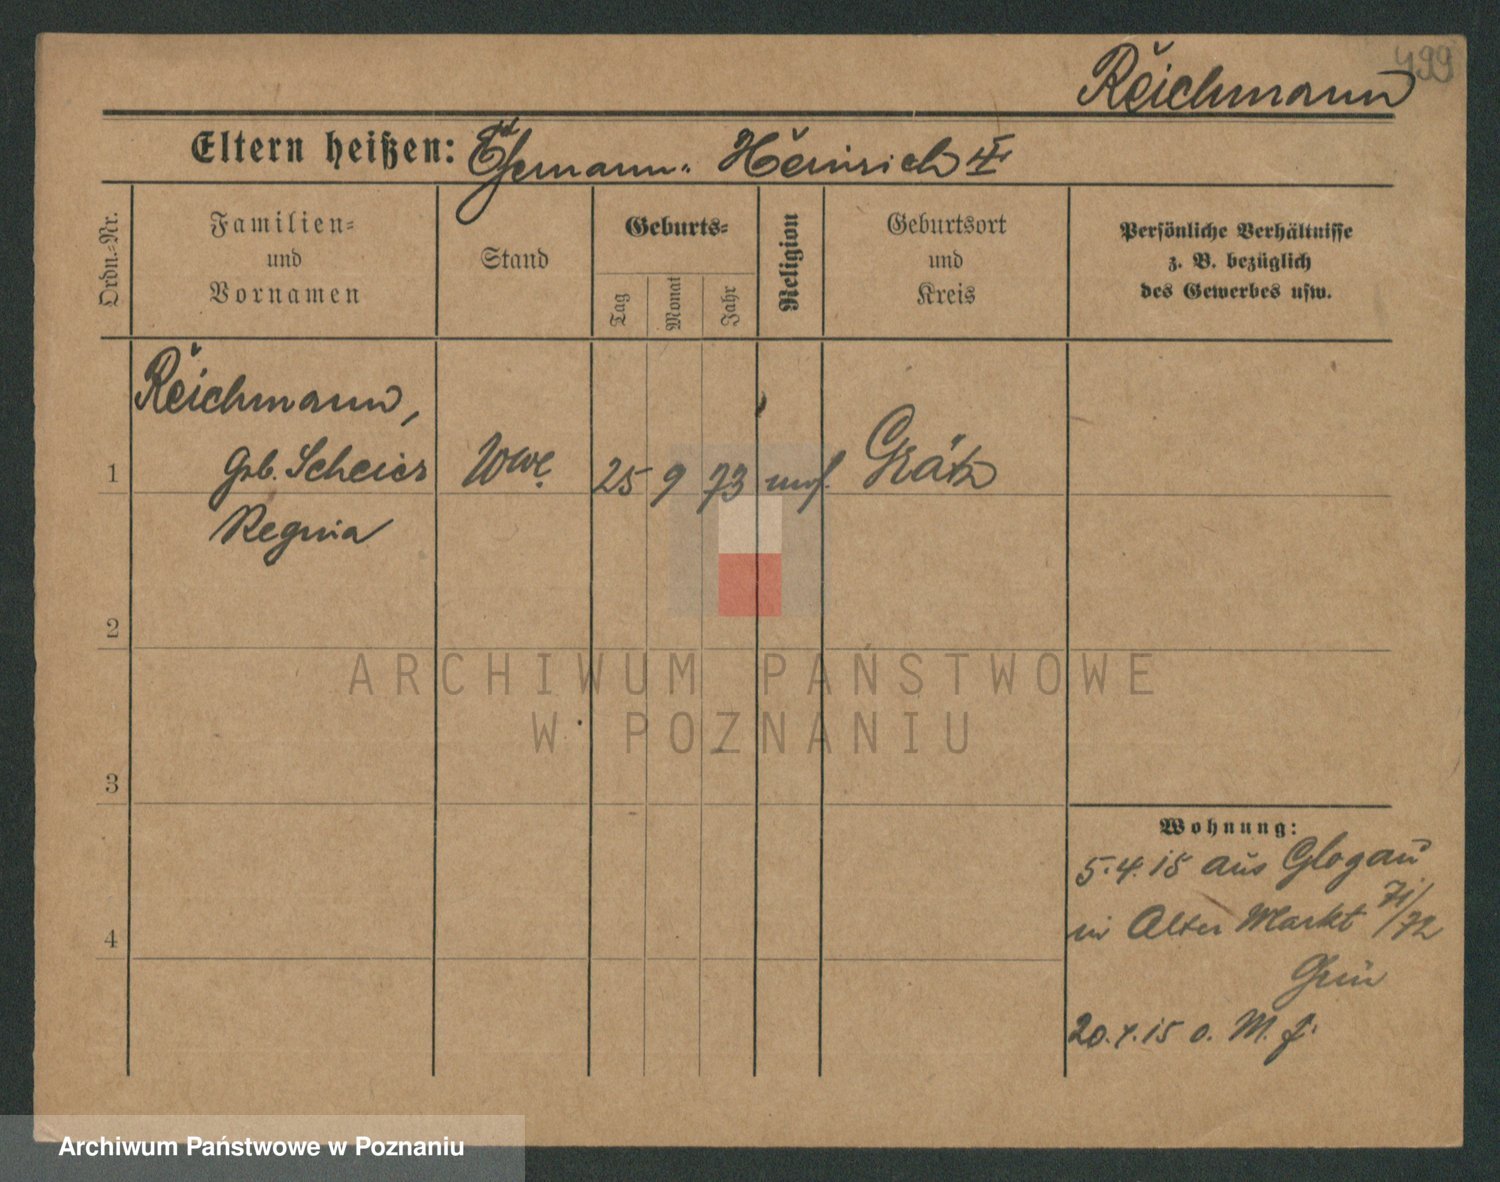 499
Reichmann
Eltern heißen: Ehemann: Heinrich †
Ordn.-Nr.
Familien-
und
Vornamen
Stand
Geburts-
Tag
Monat
Jahr
Religion
Geburtsort
und
Kreis
Persönliche Verhältnisse
z. B. bezüglich
des Gewerbes usw.
Reichmann,
1 geb. Scheier Wwe. 25 9 73 mos. Grätz
Regina
2
ARCHIWUM PAŃSTWOWE
W POZNANIU
3
Wohnung:
5.4.15 aus Glogau
in Alter Markt 71/72
4
Grün
20.4.15 o. M. f.
Archiwum Państwowe w Poznaniu